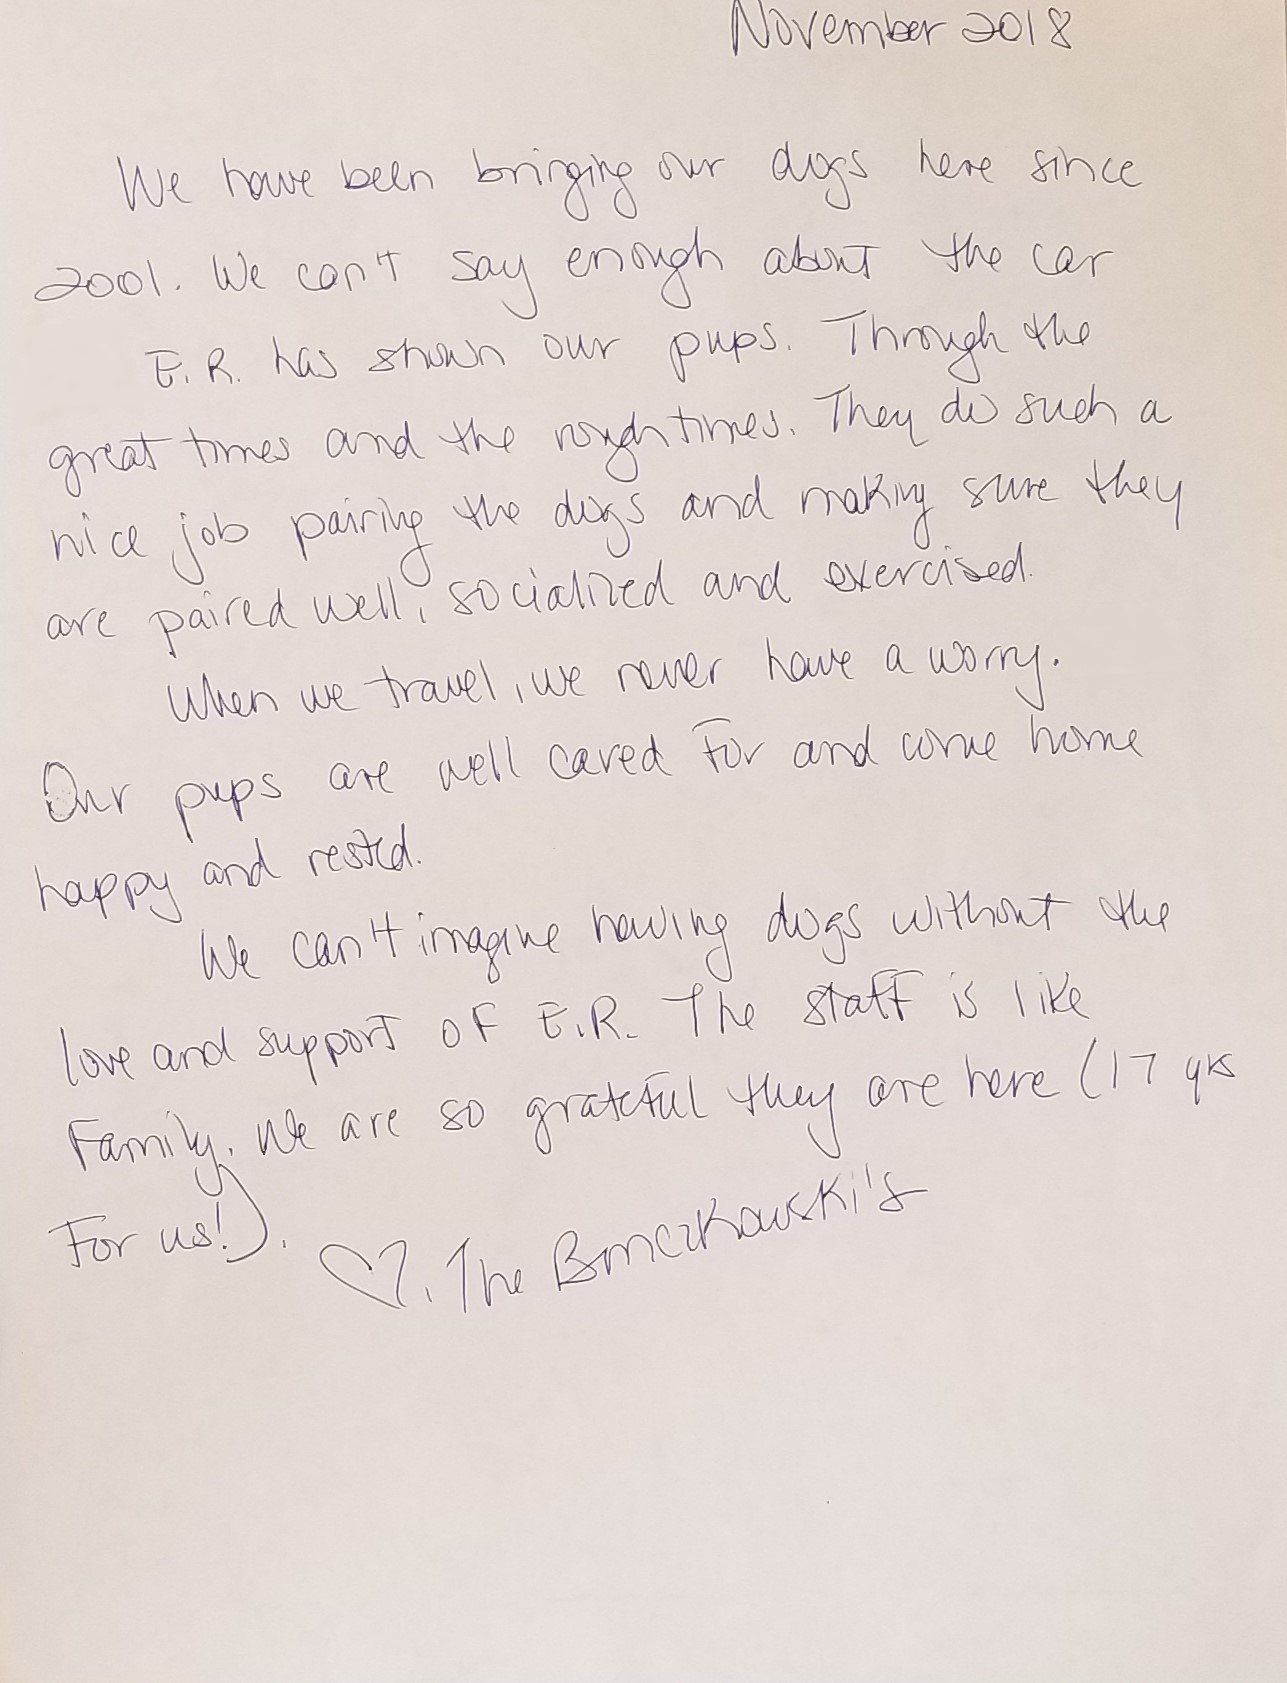 November 2018
We have been bringing our dogs here since
2001. We can't say enough about the car
E.R. has shown our pups. Through the
great times and the rough times. They do such a
nice job pairing the dogs and making sure they
are paired well, socialized and exercised.
When we travel, we never have a worry.
Our pups are well cared For and come home
happy and rested.
We can't imagine having dogs without the
love and support of E.R. The staff is like
Family. We are so grateful they are here (17 yrs
For us!).
♡. The